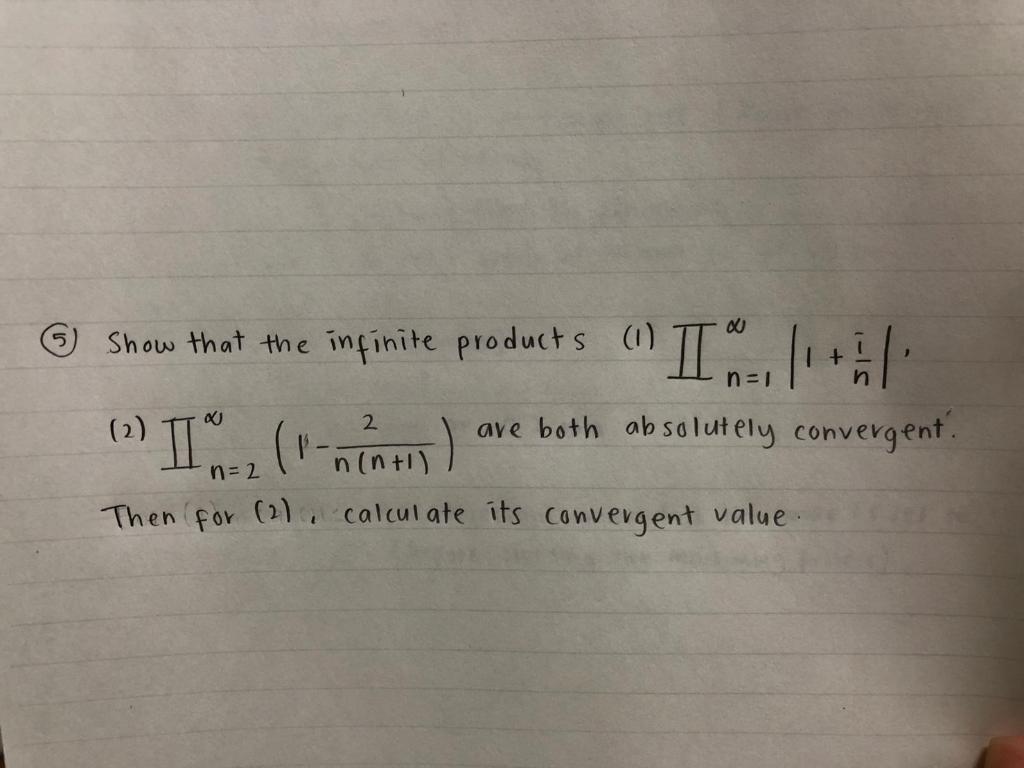 ⑤ Show that the infinite products (1) ∏_{n=1}^{∞} |1 + i/n|,
(2) ∏_{n=2}^{∞} (1 - 2/(n(n+1))) are both absolutely convergent.
Then for (2), calculate its convergent value.